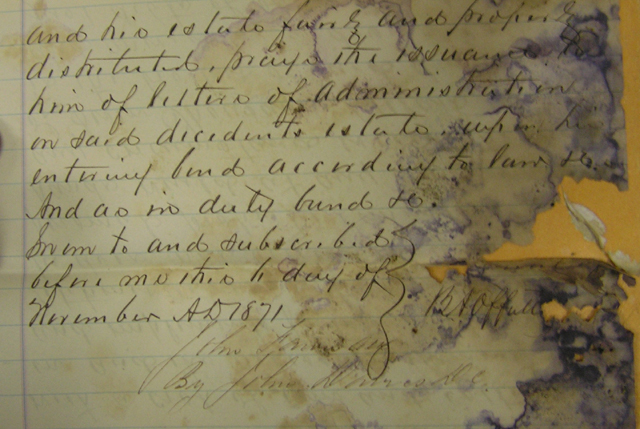 and his estate fairly and properly
distributed, prays the issuance to
him of letters of administration
on said decedents estate, upon his
entering bond according to law &c.
And as in duty bound &c.
Sworn to and subscribed
before me this 6 day of
November AD 1871
John
By John D.C.